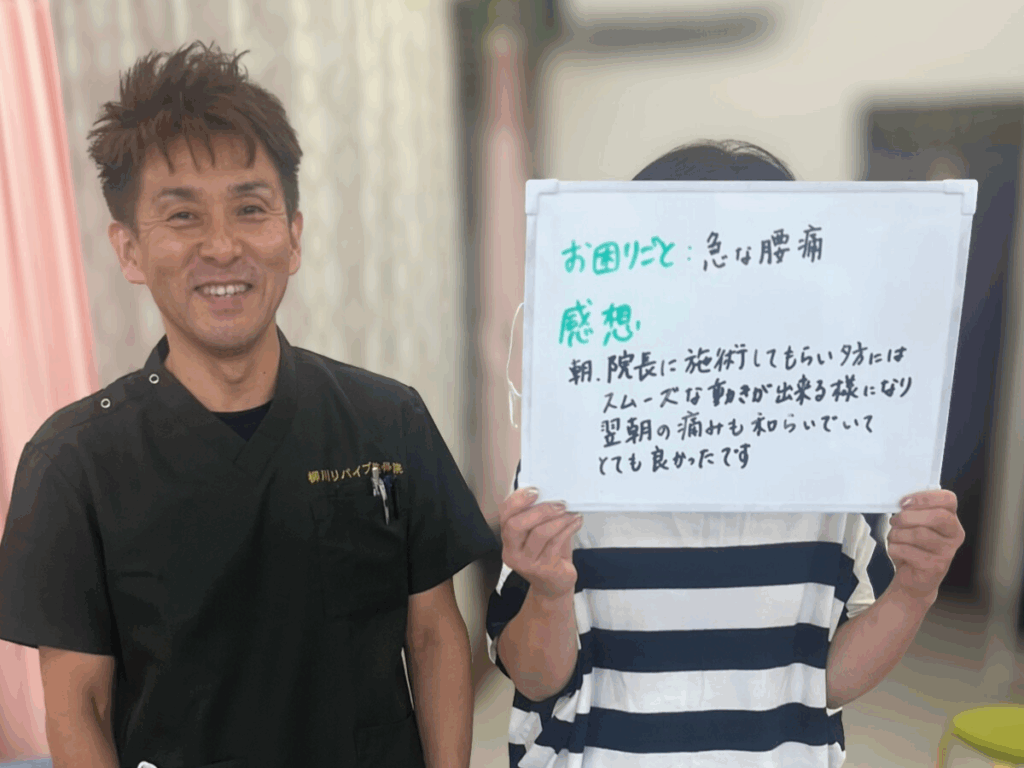 柳川リバイブ整体院
お困りごと:急な腰痛
感想
朝、院長に施術してもらい夕方には
スムーズな動きが出来る様になり
翌朝の痛みも和らいでいて
とても良かったです